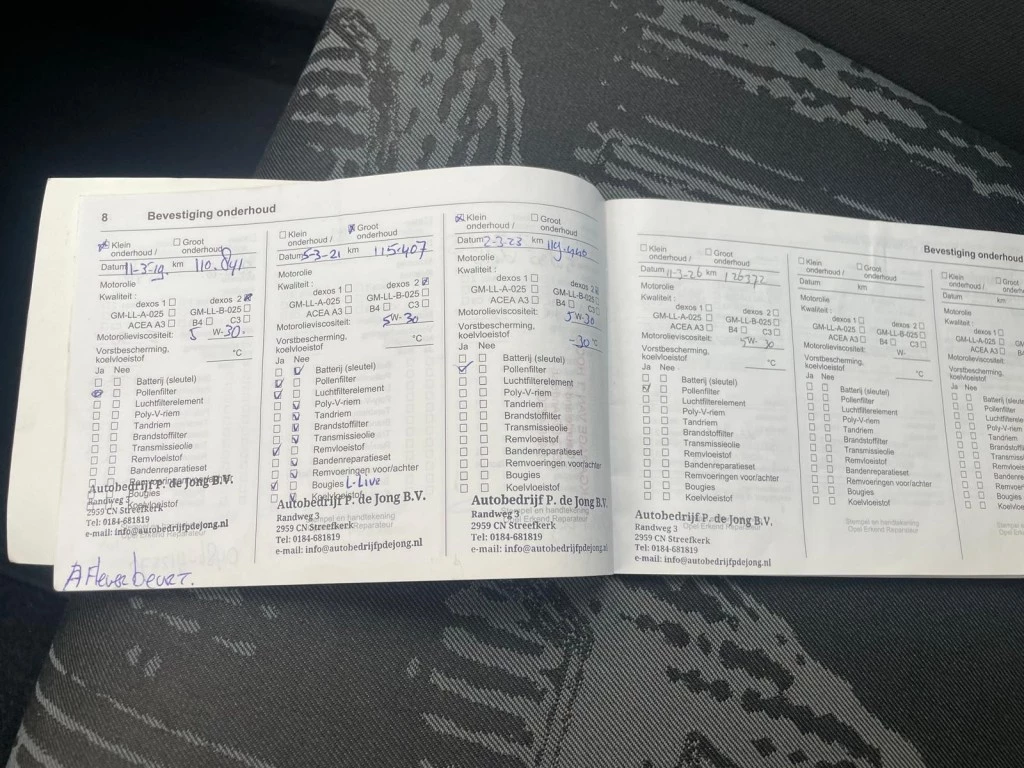 8 Bevestiging onderhoud
Klein onderhoud / Groot onderhoud
Datum 11-3-19 km 110.841
Motorolie
Kwaliteit :
dexos 1 dexos 2
GM-LL-A-025 GM-LL-B-025
ACEA A3 B4 C3
Motorolieviscositeit: 5 W-30.
Vorstbescherming, koelvloeistof °C
Ja Nee
Batterij (sleutel)
Pollenfilter
Luchtfilterelement
Poly-V-riem
Tandriem
Brandstoffilter
Transmissieolie
Remvloeistof
Bandenreparatieset
Bougies
Autobedrijf P. de Jong B.V.
Randweg 3
2959 CN Streefkerk
Tel: 0184-681819
e-mail: info@autobedrijfpdejong.nl
Afleverbeurt.
Klein onderhoud / Groot onderhoud
Datum 5-3-21 km 115.407
Motorolie
Kwaliteit :
dexos 1 dexos 2
GM-LL-A-025 GM-LL-B-025
ACEA A3 B4 C3
Motorolieviscositeit: 5W-30
Vorstbescherming, koelvloeistof °C
Ja Nee
Batterij (sleutel)
Pollenfilter
Luchtfilterelement
Poly-V-riem
Tandriem
Brandstoffilter
Transmissieolie
Remvloeistof
Bandenreparatieset
Remvoeringen voor/achter
Bougies L-Live
Koelvloeistof
Autobedrijf P. de Jong B.V.
Randweg 3
2959 CN Streefkerk
Tel: 0184-681819
e-mail: info@autobedrijfpdejong.nl
Klein onderhoud / Groot onderhoud
Datum 2-3-23 km 119.440
Motorolie
Kwaliteit :
dexos 1 dexos 2
GM-LL-A-025 GM-LL-B-025
ACEA A3 B4 C3
Motorolieviscositeit: 5W-30
Vorstbescherming, koelvloeistof -30 °C
Ja Nee
Batterij (sleutel)
Pollenfilter
Luchtfilterelement
Poly-V-riem
Tandriem
Brandstoffilter
Transmissieolie
Remvloeistof
Bandenreparatieset
Remvoeringen voor/achter
Bougies
Koelvloeistof
Autobedrijf P. de Jong B.V.
Randweg 3
2959 CN Streefkerk
Tel: 0184-681819
e-mail: info@autobedrijfpdejong.nl
Stempel en handtekening
Opel Erkend Reparateur
Bevestiging onderhoud
Klein onderhoud / Groot onderhoud
Datum 11-3-26 km 126372
Motorolie
Kwaliteit :
dexos 1 dexos 2
GM-LL-A-025 GM-LL-B-025
ACEA A3 B4 C3
Motorolieviscositeit: 5W-30
Vorstbescherming, koelvloeistof °C
Ja Nee
Batterij (sleutel)
Pollenfilter
Luchtfilterelement
Poly-V-riem
Tandriem
Brandstoffilter
Transmissieolie
Remvloeistof
Bandenreparatieset
Remvoeringen voor/achter
Bougies
Koelvloeistof
Autobedrijf P. de Jong B.V.
Randweg 3
2959 CN Streefkerk
Tel: 0184-681819
e-mail: info@autobedrijfpdejong.nl
Klein onderhoud / Groot onderhoud
Datum km
Motorolie
Kwaliteit :
dexos 1 dexos 2
GM-LL-A-025 GM-LL-B-025
ACEA A3 B4 C3
Motorolieviscositeit: W-
Vorstbescherming, koelvloeistof °C
Ja Nee
Batterij (sleutel)
Pollenfilter
Luchtfilterelement
Poly-V-riem
Tandriem
Brandstoffilter
Transmissieolie
Remvloeistof
Bandenreparatieset
Remvoeringen voor/achter
Bougies
Koelvloeistof
Stempel en handtekening
Opel Erkend Reparateur
Klein onderhoud / Groot
Datum
Motorolie
Kwaliteit :
dexos 1
GM-LL-A-025
ACEA A3
Motorolieviscositeit:
Vorstbescherming, koelvloeistof
Ja Nee
Pollenfilter
Poly-V-riem
Tandriem
Bougies